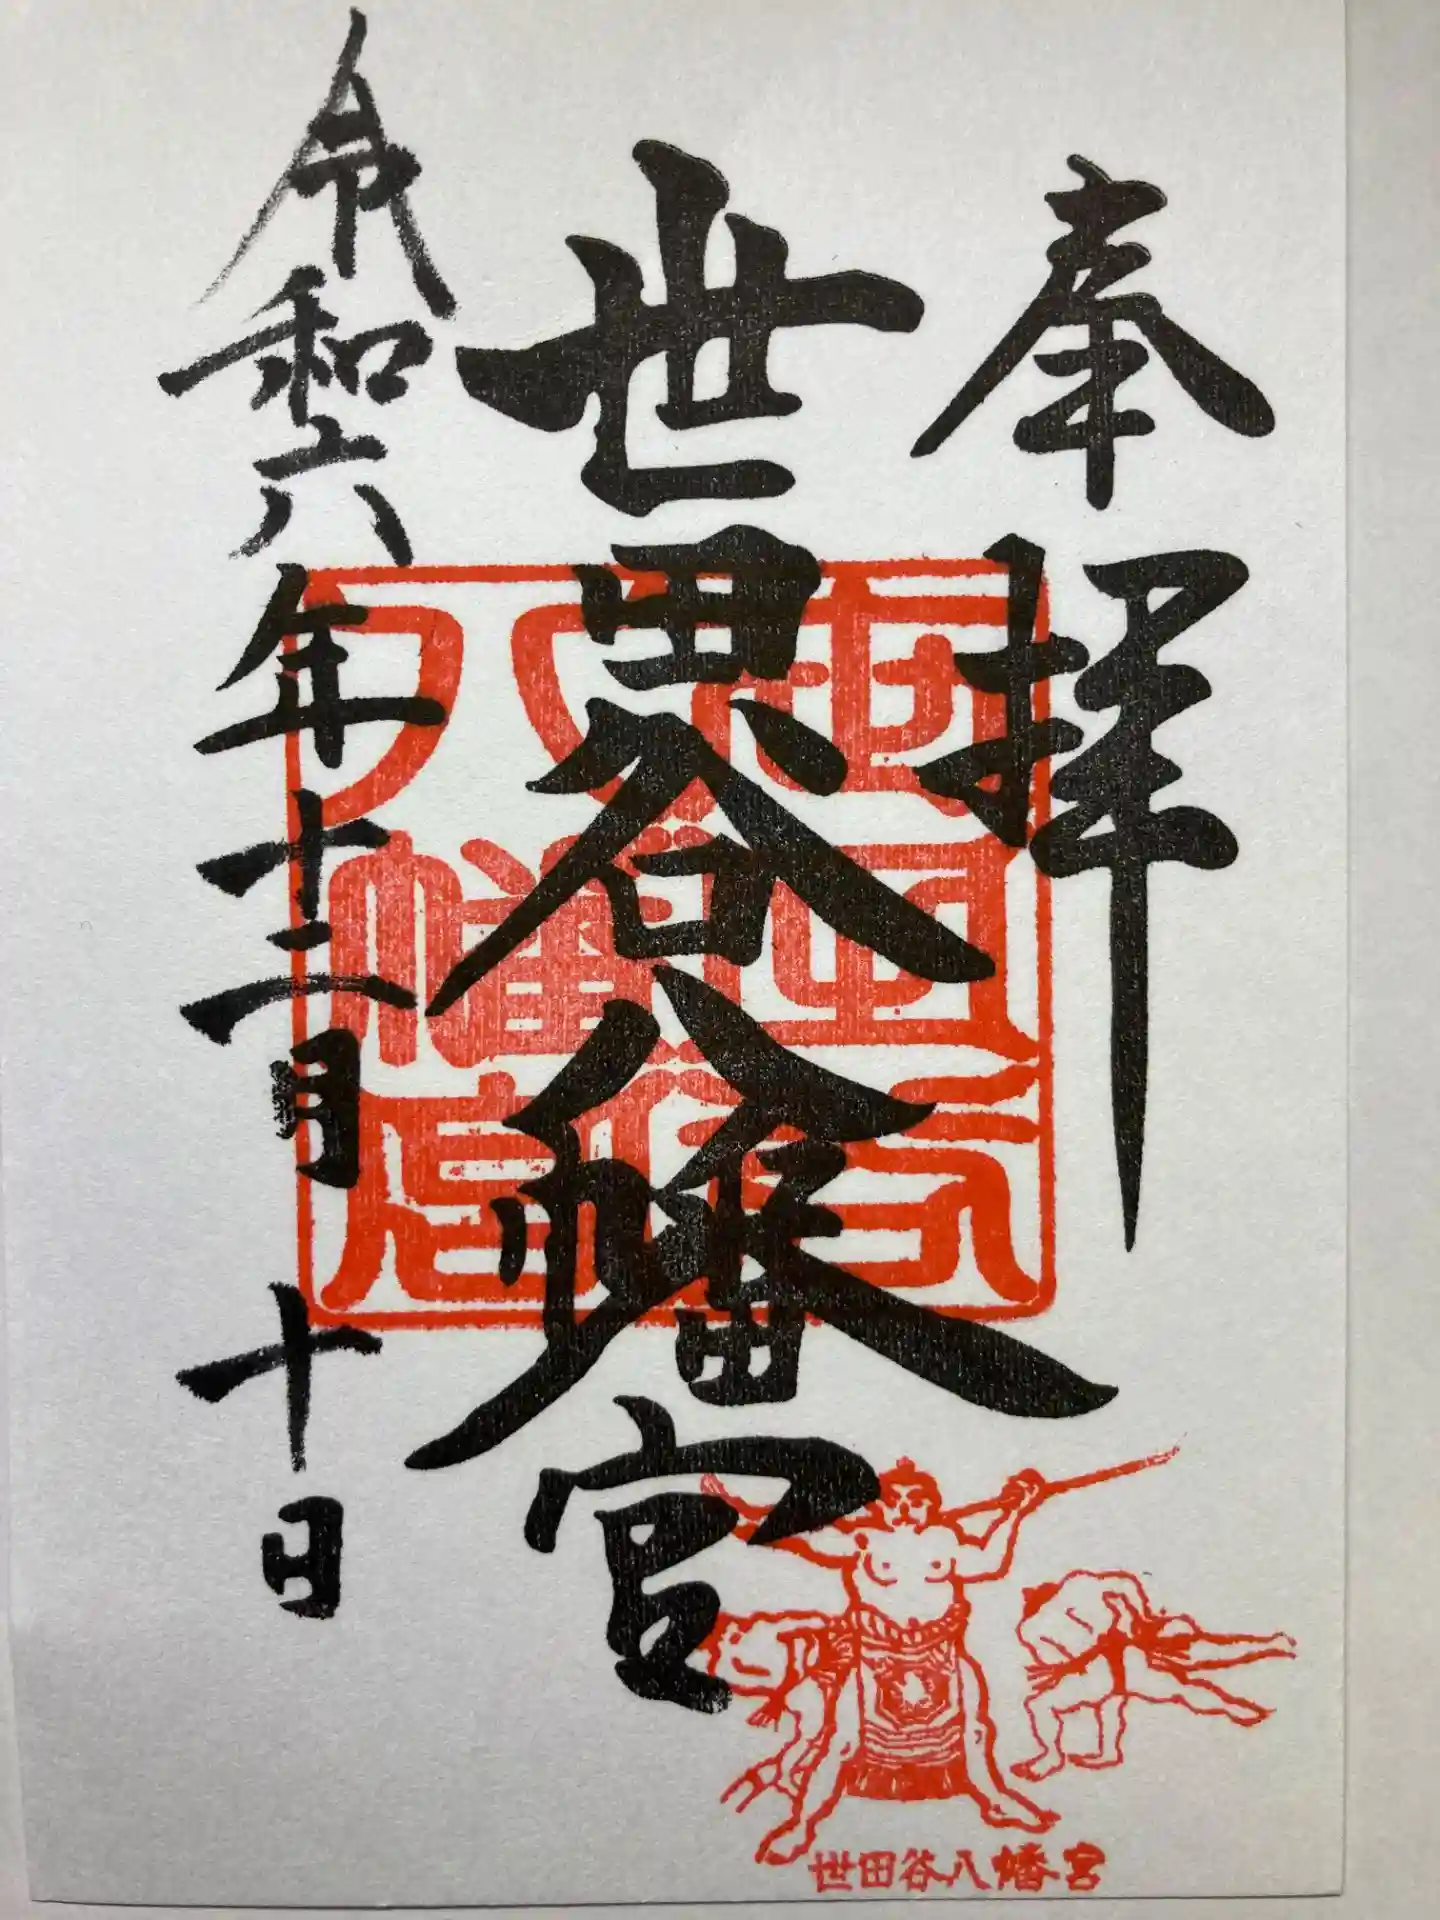 奉拝
世田谷八幡宮
世田谷
八幡宮
令和六年十二月十日
世田谷八幡宮